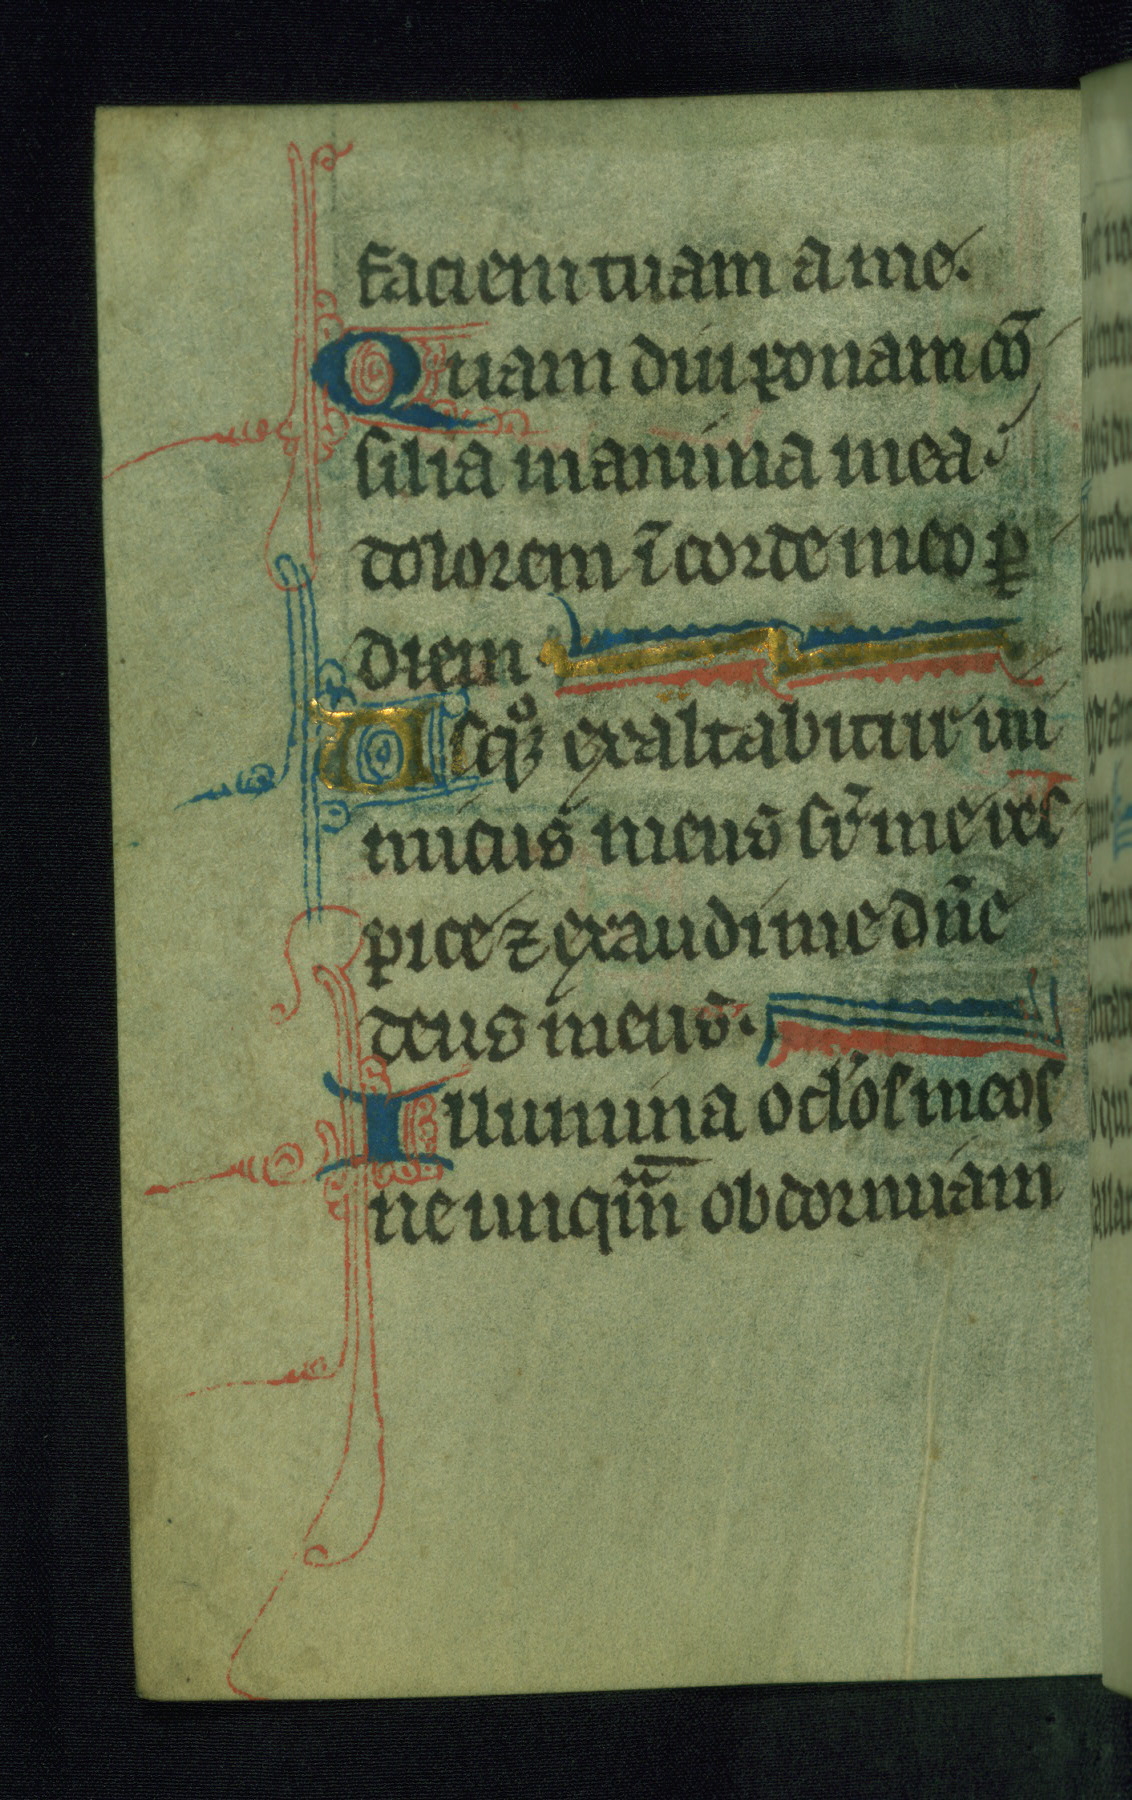 faciem tuam a me.
Quam diu ponam cō
silia in anima mea
dolorem ī corde meo ꝑ
diem.
Usqꝫͦ exaltabitur ini
micus meus suꝑ me res
pice ⁊ exaudi me dn̄e
deus meus.
Illumina oclos meos
ne unqͣm obdormiam